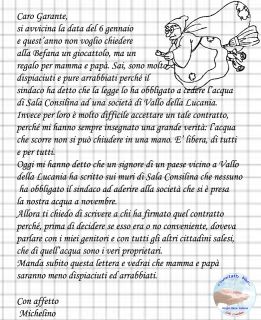 Caro Garante,
si avvicina la data del 6 gennaio
e quest'anno non voglio chiedere
alla Befana un giocattolo, ma un
regalo per mamma e papà. Sai, sono molto
dispiaciuti e pure arrabbiati perché il
sindaco ha detto che la legge lo ha obbligato a cedere l'acqua
di Sala Consilina ad una società di Vallo della Lucania.
Invece per loro è molto difficile accettare un tale contratto,
perché mi hanno sempre insegnato una grande verità: l'acqua
che scorre non si può chiudere in una mano. E' libera, di tutti
e per tutti.
Oggi mi hanno detto che un signore di un paese vicino a Vallo
della Lucania ha scritto sui muri di Sala Consilina che nessuno
ha obbligato il sindaco ad aderire alla società che si è presa
la nostra acqua a novembre.
Allora ti chiedo di scrivere a chi ha firmato quel contratto
perché, prima di decidere se esso era o no conveniente, doveva
parlare con i miei genitori e con tutti gli altri cittadini salesi,
che di quell'acqua sono i veri proprietari.
Manda subito questa lettera e vedrai che mamma e papà
saranno meno dispiaciuti ed arrabbiati.
Con affetto
Michelino